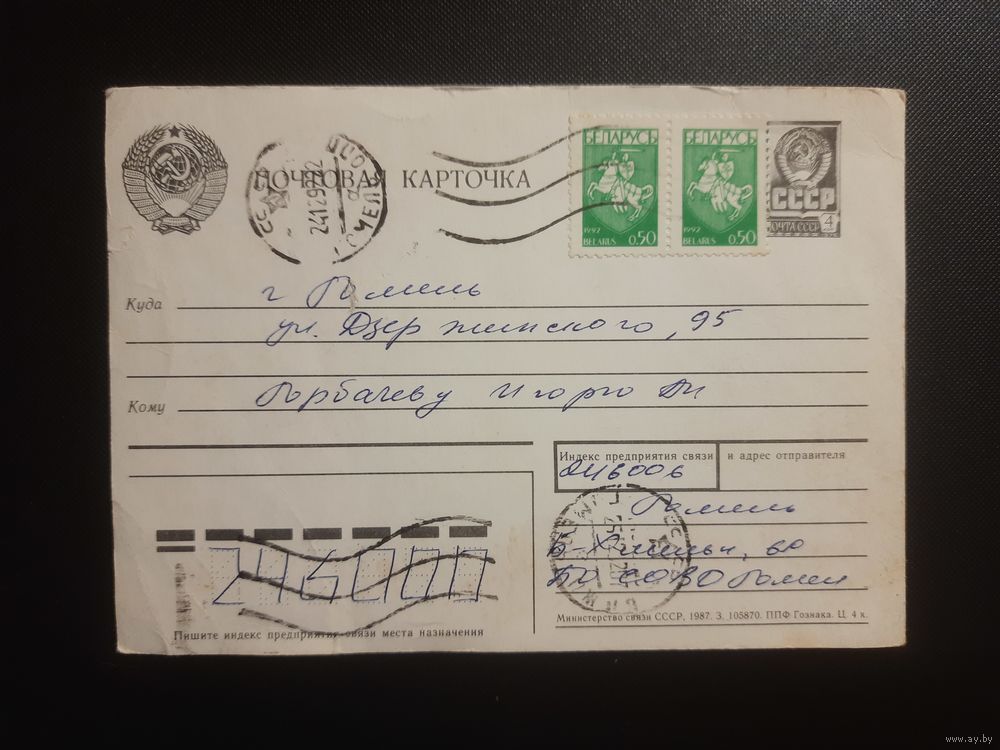 ПОЧТОВАЯ КАРТОЧКА
241292
БЕЛАРУСЬ БЕЛАРУСЬ
1992 1992
BELARUS 0.50 BELARUS 0.50
СССР
ПОЧТА СССР 4
г Гомель
Куда
ул. Дзержинского, 95
Кому Горбачеву Игорю
Индекс предприятия связи и адрес отправителя
246006
Гомель
60
246000
Министерство связи СССР, 1987. З. 105870. ППФ Гознака. Ц. 4 к.
Пишите индекс предприятия связи места назначения
www.ay.by